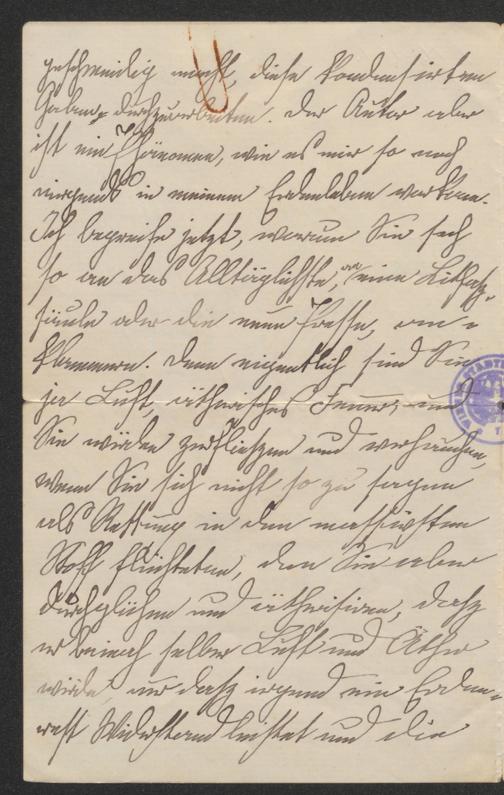 geschmeidig macht, diese kondensirten
Gaben durchzuarbeiten. Der Autor aber
ist ein Phänomen, wie es mir so noch
nirgends in meinem Erdenleben vorkam.
Ich begreife jetzt, warum Sie sich
so an das Alltäglichste, an eine Litfaß-
säule oder die neue Presse, an-
klammern. Denn eigentlich sind Sie
ja Luft, ätherisches Feuer, und
Sie würden zerfließen und verhauchen,
wenn Sie sich nicht so zu sagen
als Rettung in den massivsten
Stoff flüchteten, den Sie aber
durchglühen und ätherisiren, dasz
er beinah selber Luft und Äther
würde, nur dasz irgend ein Erden-
rest Widerstand leistet und die